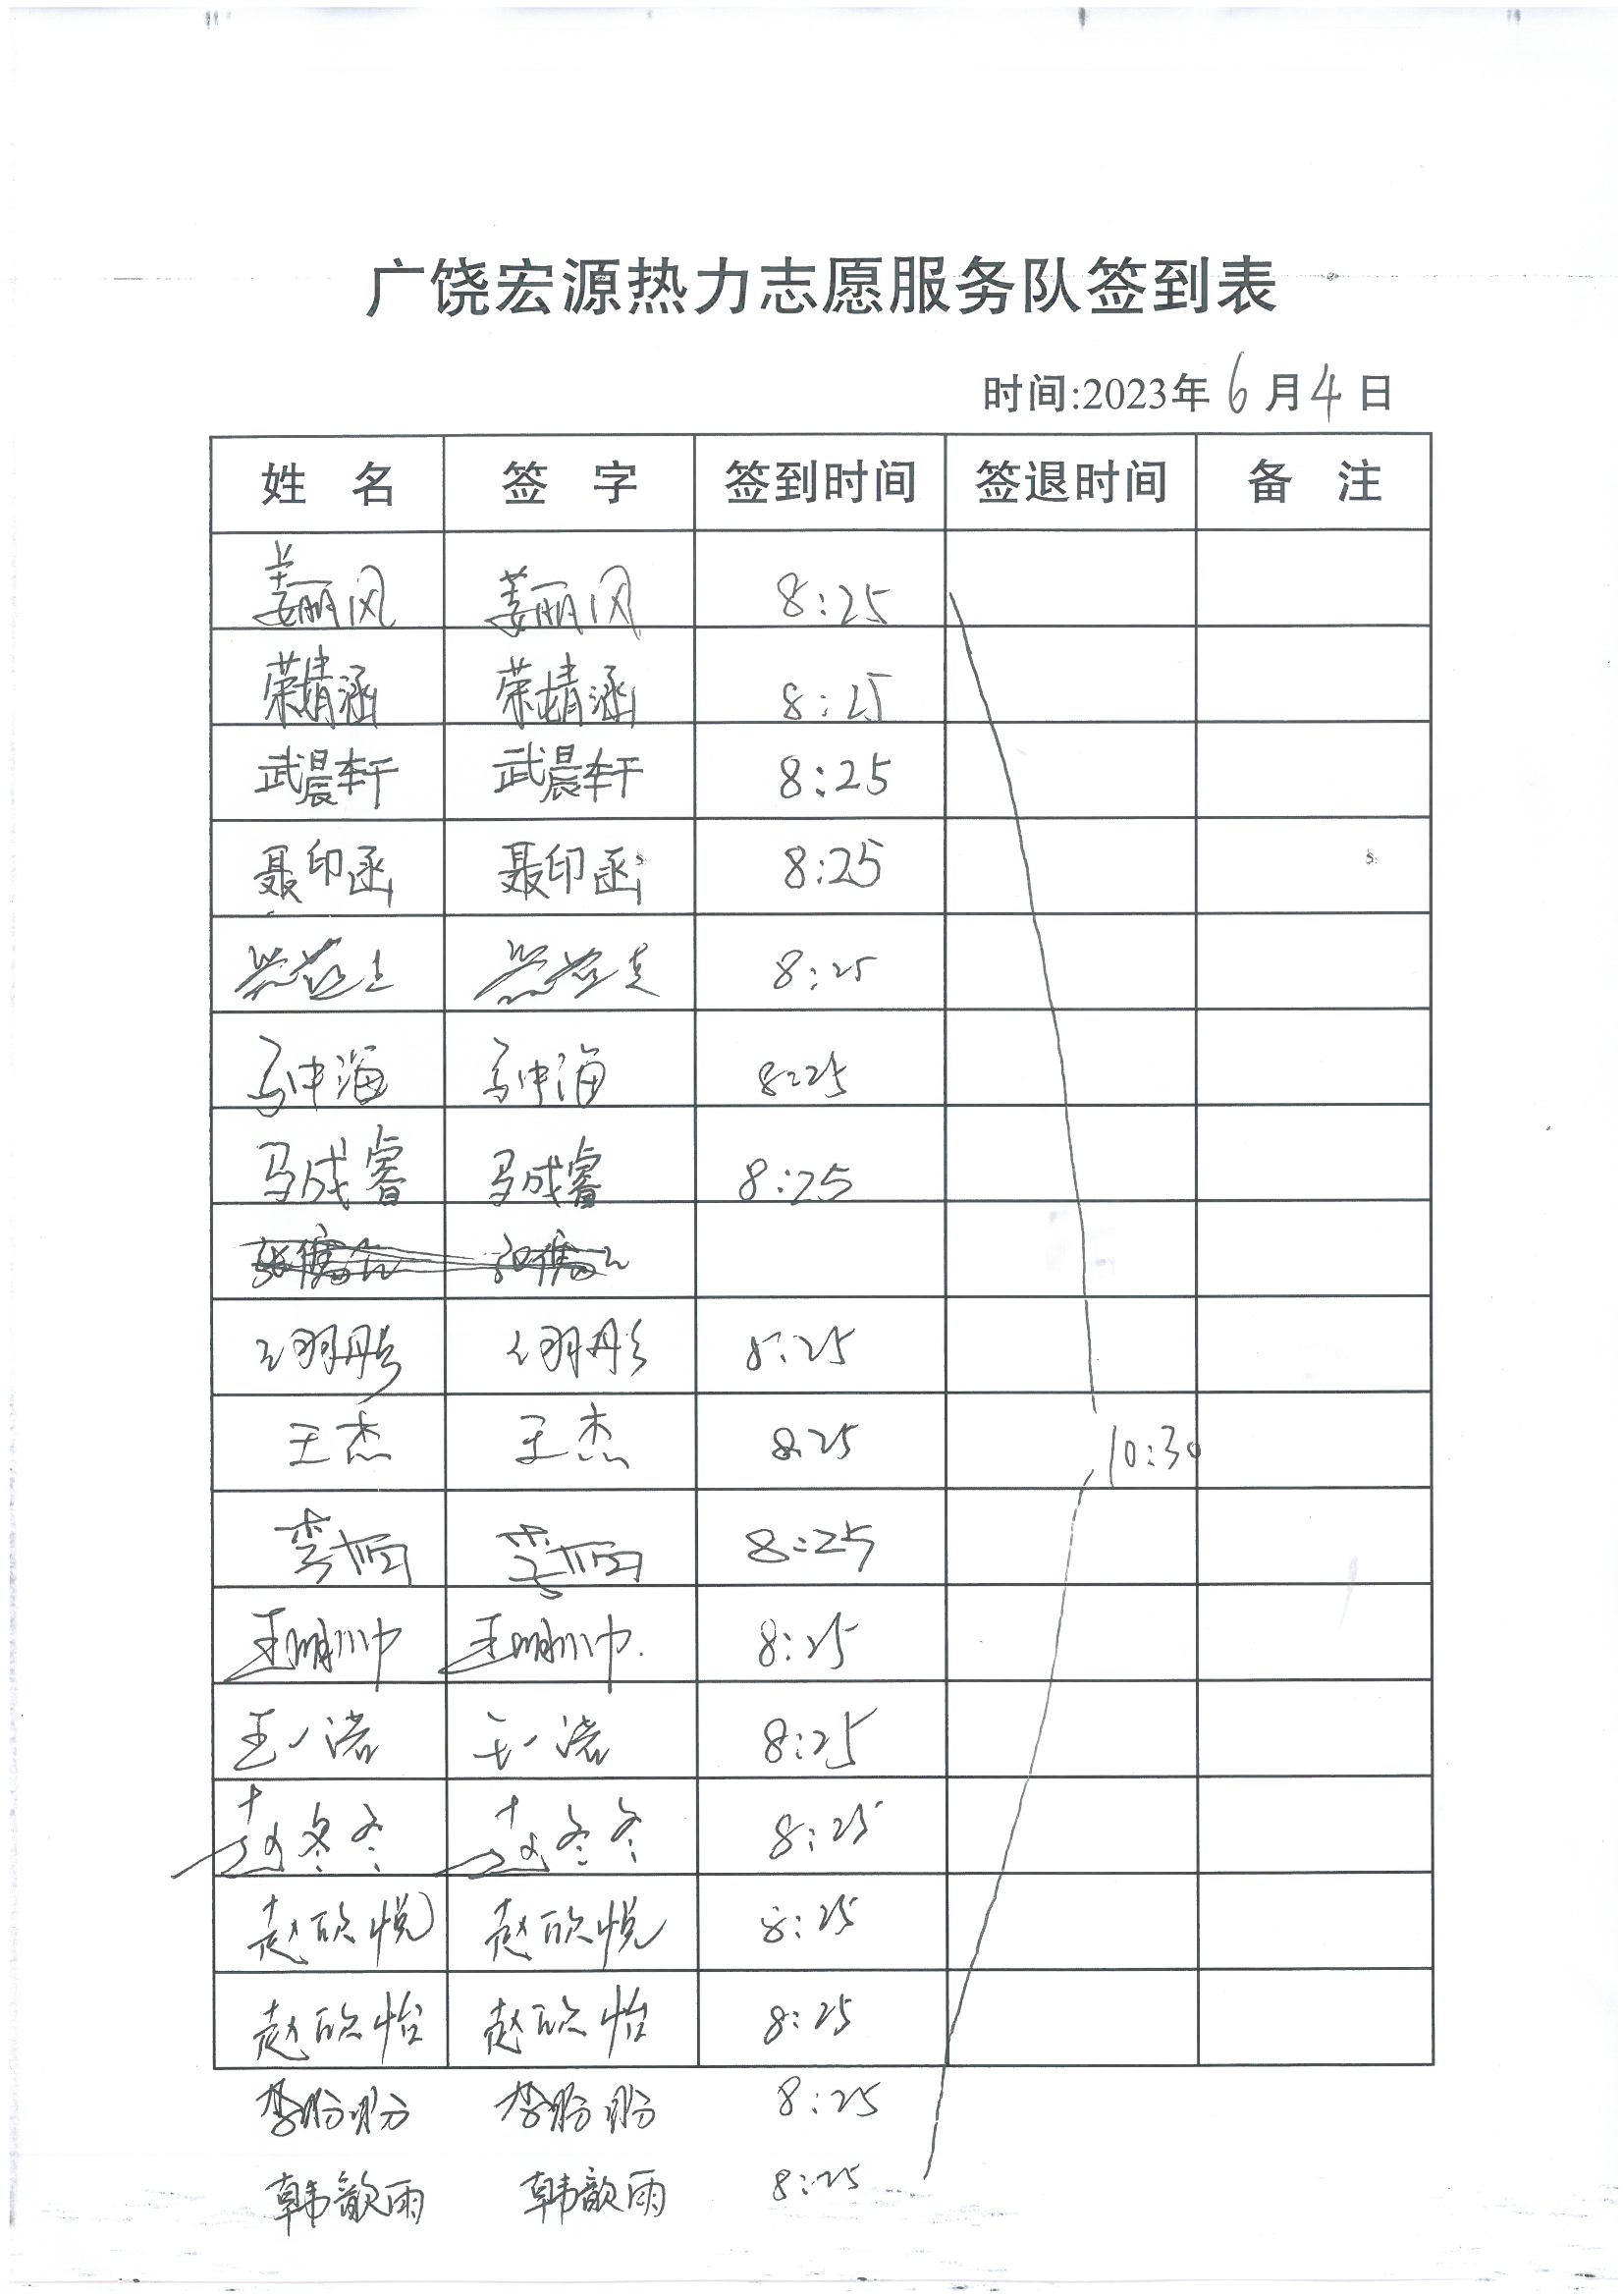 广饶宏源热力志愿服务队签到表
时间:2023年6月4日
姓 名 签 字 签到时间 签退时间 备 注
姜丽风 姜丽风 8:25
荣婧涵 荣婧涵 8:25
武晨轩 武晨轩 8:25
聂印函 聂印函 8:25
8:25
马中海 马中海 8:25
马成睿 马成睿 8:25
8:25
王杰 王杰 8:25 10:30
李 李 8:25
王明帅 王明帅 8:25
王一诺 王一诺 8:25
赵冬冬 赵冬冬 8:25
赵欣悦 赵欣悦 8:25
赵欣怡 赵欣怡 8:25
李盼盼 李盼盼 8:25
韩歆雨 韩歆雨 8:25